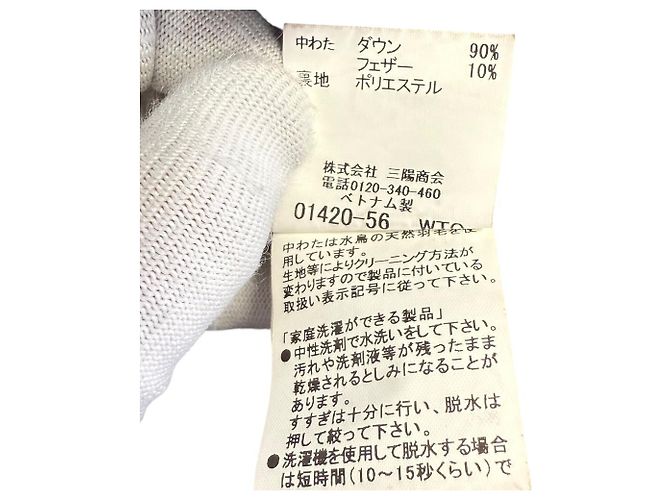 中わた ダウン 90%
フェザー 10%
裏地 ポリエステル
株式会社 三陽商会
電話0120-340-460
ベトナム製
01420-56 WTC
中わたは水鳥の天然羽毛を使
用しています。
生地等によりクリーニング方法が
変わりますので製品に付いている
取扱い表示記号に従って下さい。
「家庭洗濯ができる製品」
●中性洗剤で水洗いをして下さい。
汚れや洗剤液等が残ったまま
乾燥されるとしみになることが
あります。
すすぎは十分に行い、脱水は
押して絞って下さい。
●洗濯機を使用して脱水する場合
は短時間(10~15秒くらい)で